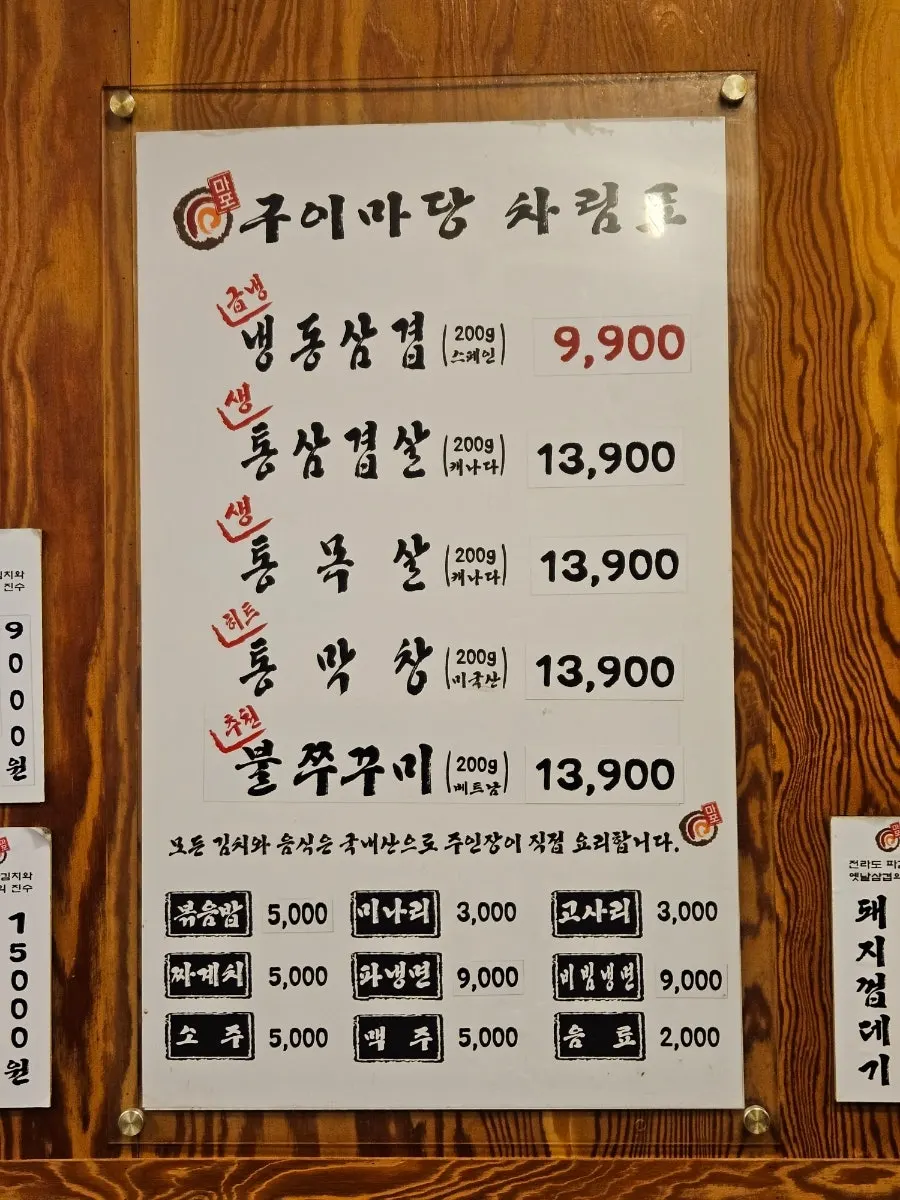 마포 구이마당 차림표
급냉
냉동삼겹 (200g 스페인) 9,900
생
통삼겹살 (200g 캐나다) 13,900
생
통목살 (200g 캐나다) 13,900
히트
통막창 (200g 미국산) 13,900
추천
불쭈꾸미 (200g 베트남) 13,900
마포
모든 김치와 음식은 국내산으로 주인장이 직접 요리합니다.
볶음밥 5,000 미나리 3,000 고사리 3,000
찌개치 5,000 파냉면 9,000 비빔냉면 9,000
소주 5,000 맥주 5,000 음료 2,000
김치와
진수
9000원
김치와
의 진수
15000원
전라도 파김
옛날삼겹의
돼지껍데기